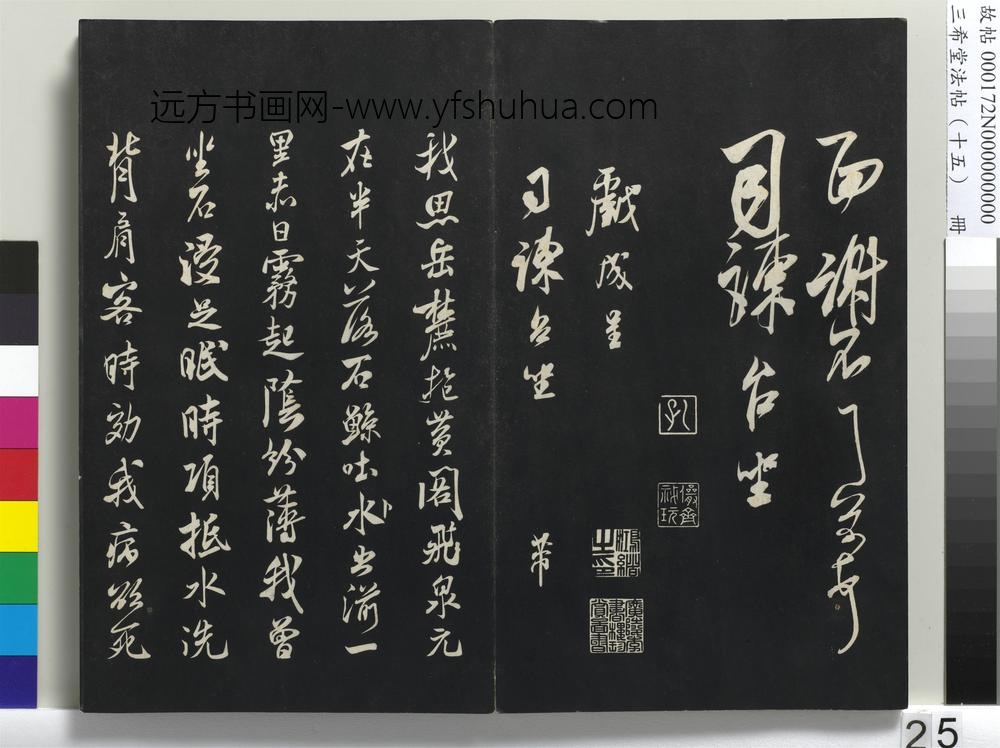 面謝不一芾頓首
司諫台坐
戲成呈
司諫台坐
芾
我思岳麓抱黃閣飛泉元
在半天落石鯨吐水出湔一
里赤日霧起陰紛薄我曾
坐石浸足眠時項抵水洗
背肩客時効我病欲死
远方书画网-www.yfshuhua.com
故帖 000172N000000000
三希堂法帖(十五) 冊
25